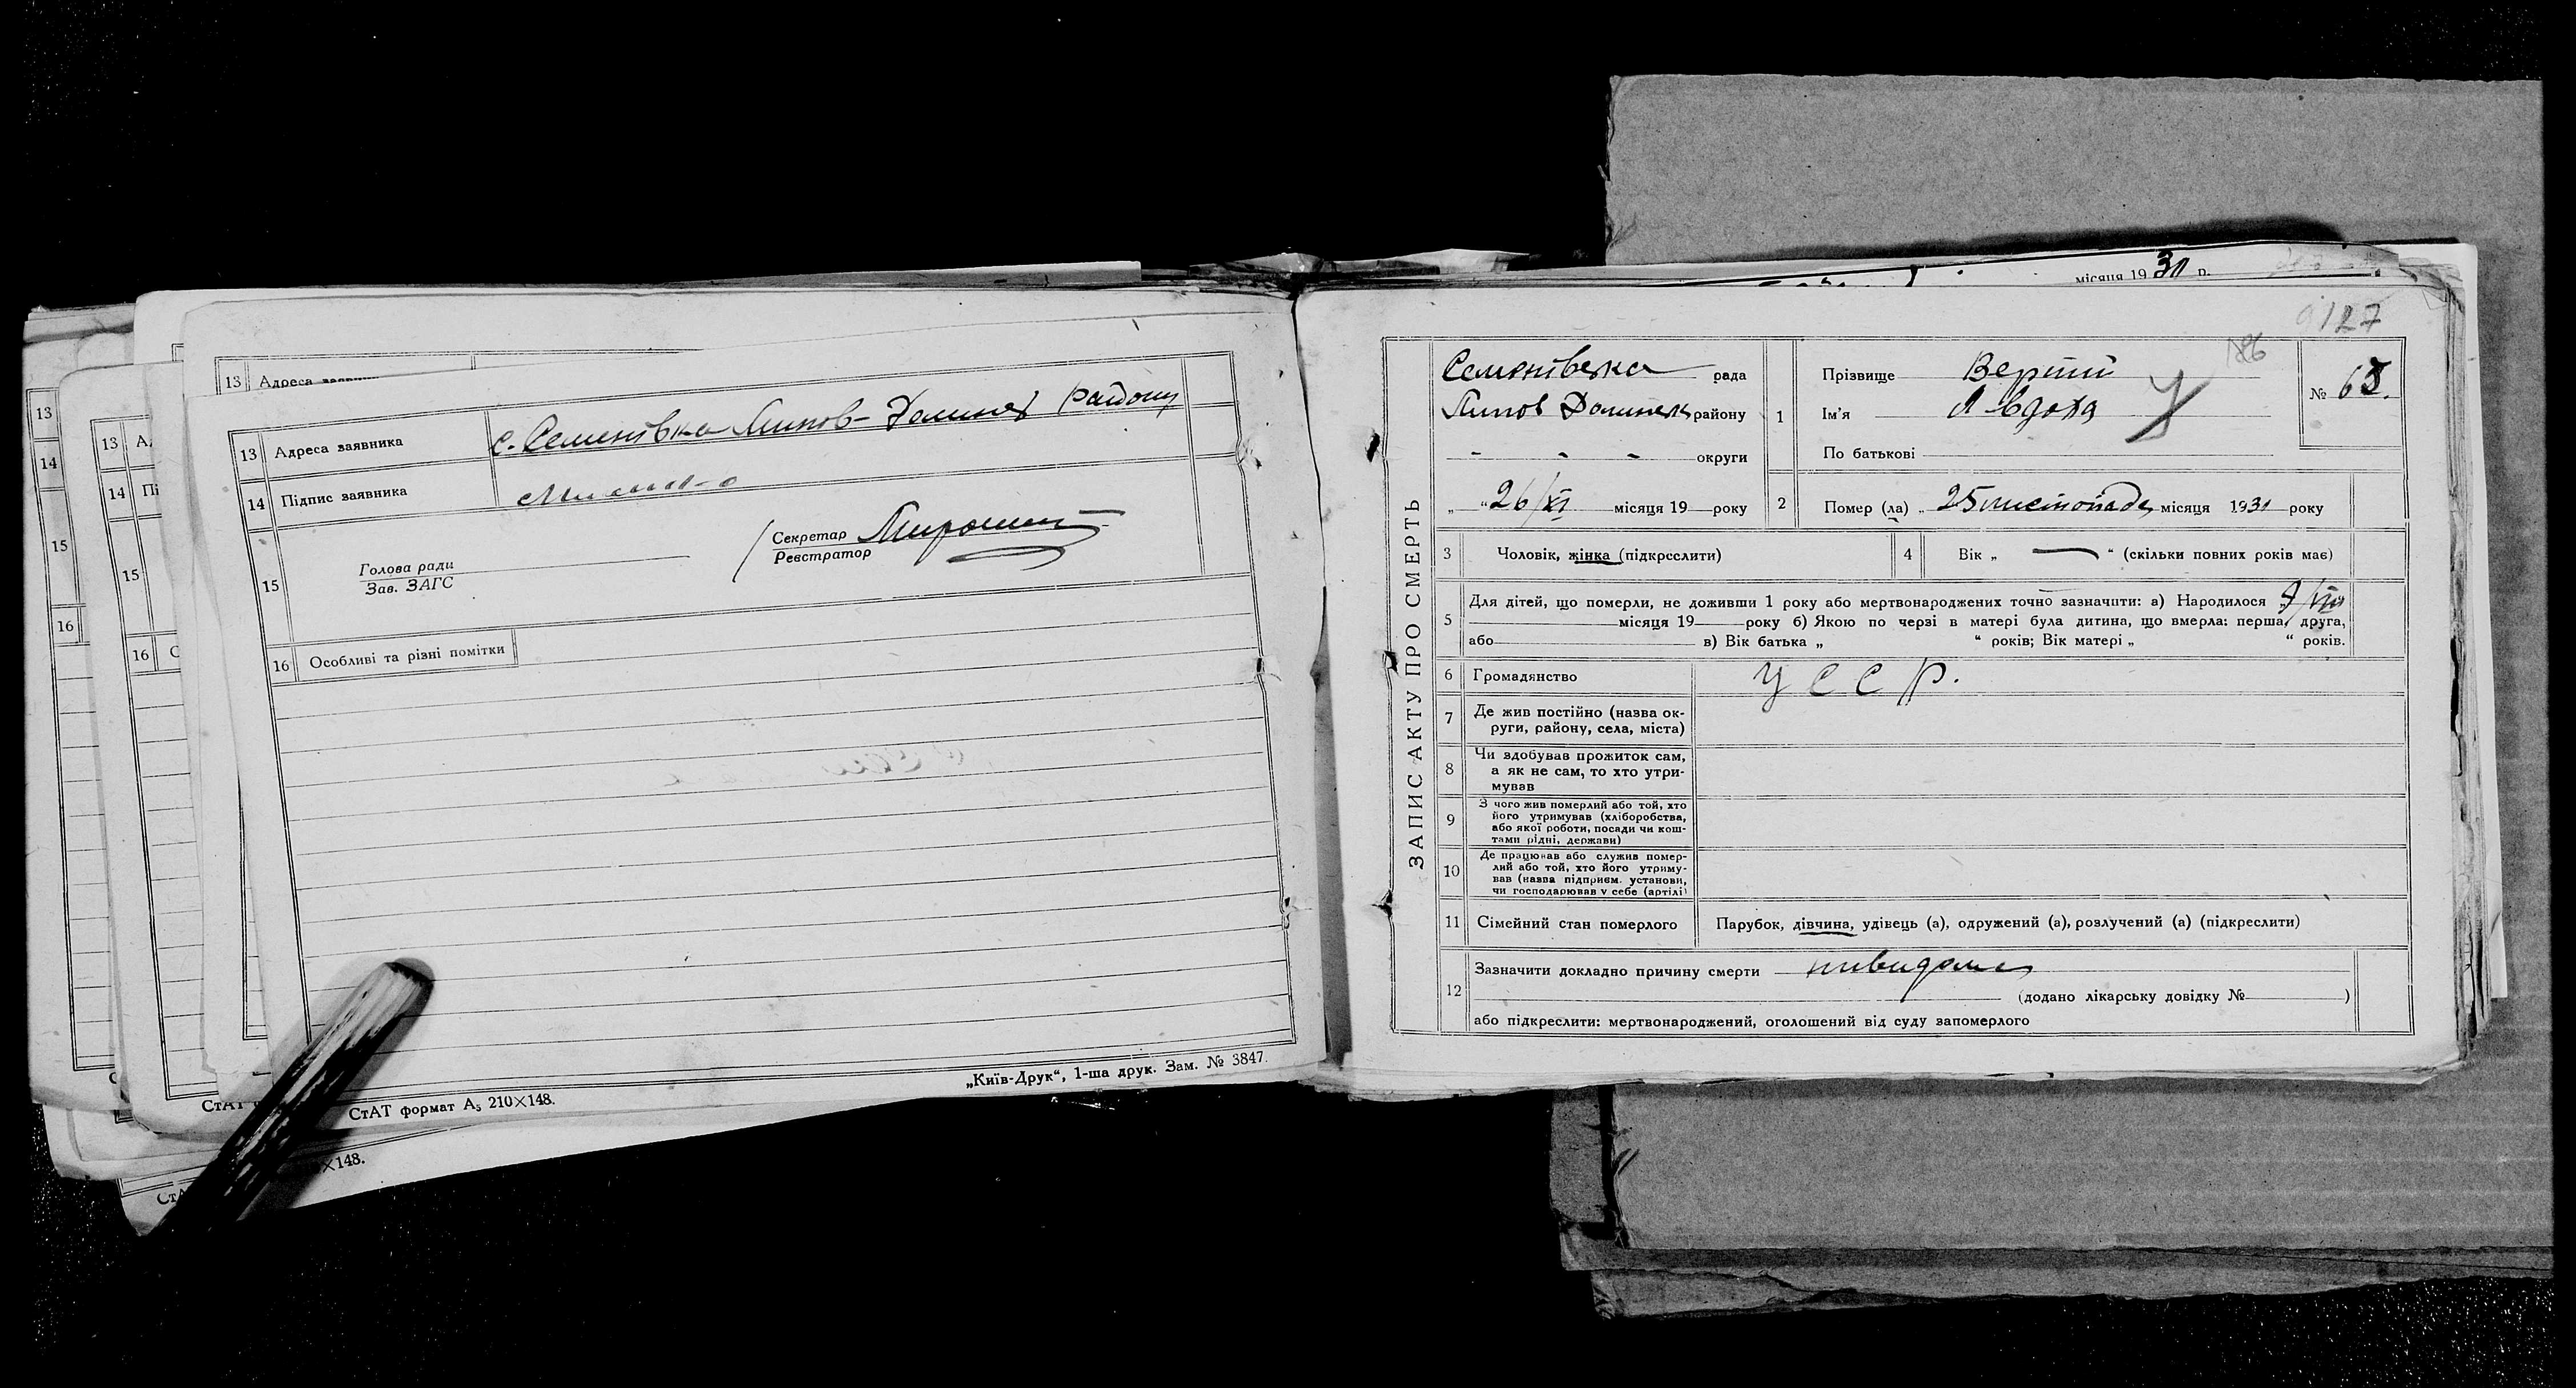 13 Адреса
13
14
15
16
13 А
14 Пі
15
16 С
13 Адреса заявника с. Семенівка Липов-Долинс району
14 Підпис заявника
15 Голова ради
Зав. ЗАГС
Секретар
Реєстратор
16 Особливі та різні помітки
„Київ-Друк“, 1-ша друк. Зам. № 3847.
СтАТ формат А₅ 210×148.
×148.
місяця 1931 р.
127
186
ЗАПИС АКТУ ПРО СМЕРТЬ
Семенівська рада
Липов Долинськ району
- - - округи
„ “ 26/XI місяця 19 року
1 Прізвище
Ім’я Явдоха
По батькові
№ 68.
2 Помер (ла) „ 25 листопада місяця 1931 року
3 Чоловік, жінка (підкреслити)
4 Вік „ — “ (скільки повних років має)
5 Для дітей, що померли, не доживши 1 року або мертвонароджених точно зазначити: а) Народилося „
місяця 19 року б) Якою по черзі в матері була дитина, що вмерла: перша, друга,
або в) Вік батька „ “ років; Вік матері „ “ років.
6 Громадянство УССР.
7 Де жив постійно (назва округи, району, села, міста)
8 Чи здобував прожиток сам,
а як не сам, то хто утримував
9 З чого жив померлий або той, хто
його утримував (хліборобства,
або якої роботи, посади чи коштами рідні, держави)
10 Де працював або служив померлий або той, хто його утримував (назва підприєм. установи,
чи господарював у себе (артілі)
11 Сімейний стан померлого Парубок, дівчина, удівець (а), одружений (а), розлучений (а) (підкреслити)
12 Зазначити докладно причину смерти
(додано лікарську довідку № )
або підкреслити: мертвонароджений, оголошений від суду запомерлого